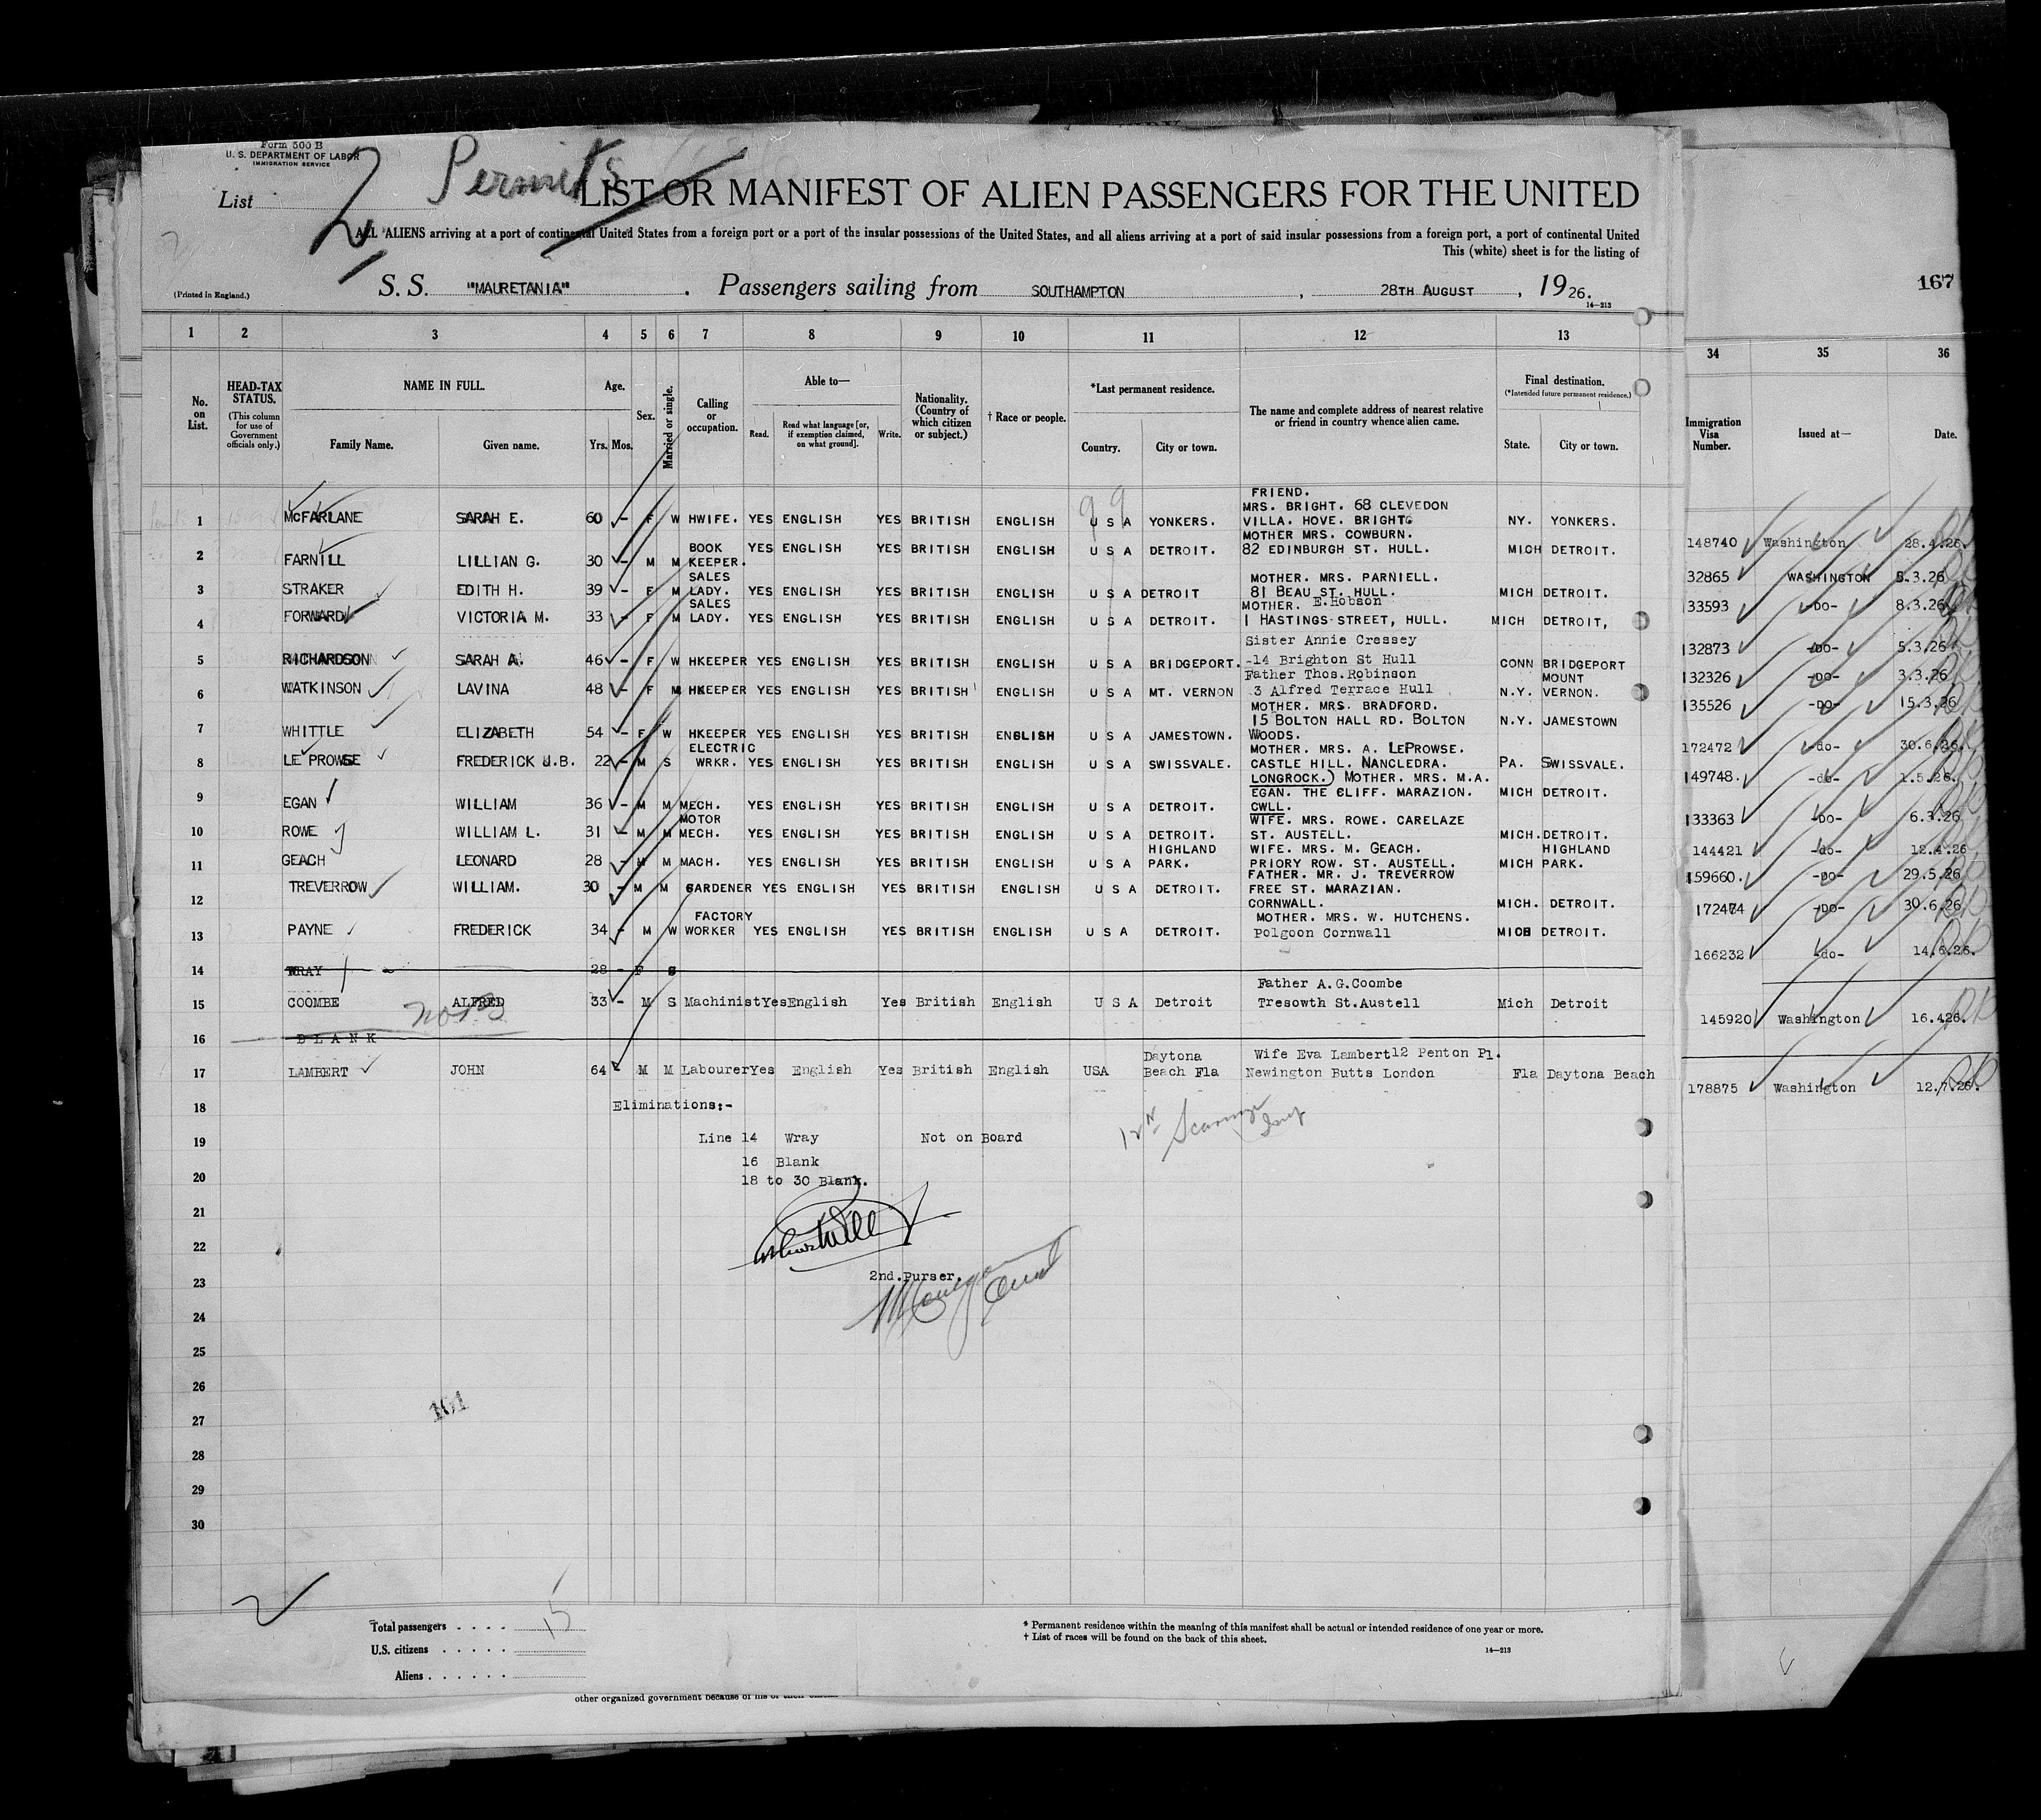 Form 500 B
U. S. DEPARTMENT OF LABOR
IMMIGRATION SERVICE
List
2 Permits
LIST OR MANIFEST OF ALIEN PASSENGERS FOR THE UNITED
ALL ALIENS arriving at a port of continental United States from a foreign port or a port of the insular possessions of the United States, and all aliens arriving at a port of said insular possessions from a foreign port, a port of continental United
This (white) sheet is for the listing of
(Printed in England.)
S. S. "MAURETANIA" . Passengers sailing from SOUTHAMPTON , 28TH AUGUST , 1926.
14—213
167
1 2 3 4 5 6 7 8 9 10 11 12 13 34 35 36
No. on List.
HEAD-TAX STATUS.
(This column for use of Government officials only.)
NAME IN FULL.
Family Name. Given name.
Age.
Yrs. Mos.
Sex.
Married or single.
Calling or occupation.
Able to—
Read. Read what language [or, if exemption claimed, on what ground]. Write.
Nationality. (Country of which citizen or subject.)
† Race or people.
*Last permanent residence.
Country. City or town.
The name and complete address of nearest relative or friend in country whence alien came.
Final destination.
(*Intended future permanent residence.)
State. City or town.
Immigration Visa Number.
Issued at—
Date.
99
FRIEND.
MRS. BRIGHT. 68 CLEVEDON
1 MCFARLANE SARAH E. 60 - F W HWIFE. YES ENGLISH YES BRITISH ENGLISH U S A YONKERS. VILLA. HOVE. BRIGHTO NY. YONKERS. 148740 Washington 28.4.26.
MOTHER MRS. COWBURN.
2 FARNILL LILLIAN G. 30 - M M BOOK KEEPER. YES ENGLISH YES BRITISH ENGLISH U S A DETROIT. 82 EDINBURGH ST. HULL. MICH DETROIT. 32865 WASHINGTON 5.3.26
MOTHER. MRS. PARNIELL.
3 STRAKER EDITH H. 39 - F M SALES LADY. YES ENGLISH YES BRITISH ENGLISH U S A DETROIT 81 BEAU ST. HULL. MICH DETROIT. 133593 -DO- 8.3.26
MOTHER. E.Hobson
4 FORWARD VICTORIA M. 33 - F M SALES LADY. YES ENGLISH YES BRITISH ENGLISH U S A DETROIT. 1 HASTINGS STREET, HULL. MICH DETROIT, 132873 -DO- 5.3.26
Sister Annie Cressey
5 RICHARDSON SARAH A. 46 - F W HKEEPER YES ENGLISH YES BRITISH ENGLISH U S A BRIDGEPORT. -14 Brighton St Hull CONN BRIDGEPORT 132326 -DO- 3.3.26
Father Thos.Robinson
6 WATKINSON LAVINA 48 - F M HKEEPER YES ENGLISH YES BRITISH ENGLISH U S A MT. VERNON 3 Alfred Terrace Hull N.Y. MOUNT VERNON. 135526 -DO- 15.3.26
MOTHER. MRS. BRADFORD.
15 BOLTON HALL RD. BOLTON
7 WHITTLE ELIZABETH 54 - F W HKEEPER YES ENGLISH YES BRITISH ENGLISH U S A JAMESTOWN. WOODS. N.Y. JAMESTOWN 172472 -do- 30.6.26.
MOTHER. MRS. A. LEPROWSE.
8 LE PROWSE FREDERICK J.B. 22 - M S ELECTRIC WRKR. YES ENGLISH YES BRITISH ENGLISH U S A SWISSVALE. CASTLE HILL. NANCLEDRA. PA. SWISSVALE. 149748. -do- 1.5.26.
LONGROCK.) MOTHER. MRS. M.A.
EGAN. THE CLIFF. MARAZION.
9 EGAN WILLIAM 36 - M M MECH. YES ENGLISH YES BRITISH ENGLISH U S A DETROIT. CWLL. MICH DETROIT. 133363 -DO- 6.3.26
WIFE. MRS. ROWE. CARELAZE
10 ROWE WILLIAM L. 31 - M M MOTOR MECH. YES ENGLISH YES BRITISH ENGLISH U S A DETROIT. ST. AUSTELL. MICH. DETROIT. 144421 -do- 12.4.26
WIFE. MRS. M. GEACH.
11 GEACH LEONARD 28 - M M MACH. YES ENGLISH YES BRITISH ENGLISH U S A HIGHLAND PARK. PRIORY ROW. ST. AUSTELL. MICH HIGHLAND PARK. 159660. -DO- 29.5.26
FATHER. MR. J. TREVERROW
12 TREVERROW WILLIAM. 30 - M M GARDENER YES ENGLISH YES BRITISH ENGLISH U S A DETROIT. FREE ST. MARAZIAN. CORNWALL. MICH. DETROIT. 172474 -DO- 30.6.26
MOTHER. MRS. W. HUTCHENS.
13 PAYNE FREDERICK 34 - M W FACTORY WORKER YES ENGLISH YES BRITISH ENGLISH U S A DETROIT. Polgoon Cornwall MICH DETROIT. 166232 -do- 14.6.26.
14 WRAY 28 - F S
Father A.G.Coombe
15 COOMBE ALFRED 33 - M S Machinist Yes English Yes British English U S A Detroit Tresowth St.Austell Mich Detroit 145920 Washington 16.426.
16 BLANK
Wife Eva Lambert12 Penton Pl.
17 LAMBERT JOHN 64 - M M Labourer Yes English Yes British English USA Daytona Beach Fla Newington Butts London Fla Daytona Beach 178875 Washington 12.7.26.
18 Eliminations:-
19 Line 14 Wray Not on Board
16 Blank
20 18 to 30 Blank.
21
22
2nd.Purser.
23
24
25
26
161
27
28
29
30
Total passengers . . . . 15
U.S. citizens . . . . .
Aliens . . . . . .
* Permanent residence within the meaning of this manifest shall be actual or intended residence of one year or more.
† List of races will be found on the back of this sheet.
14—213
other organized government because of his or their